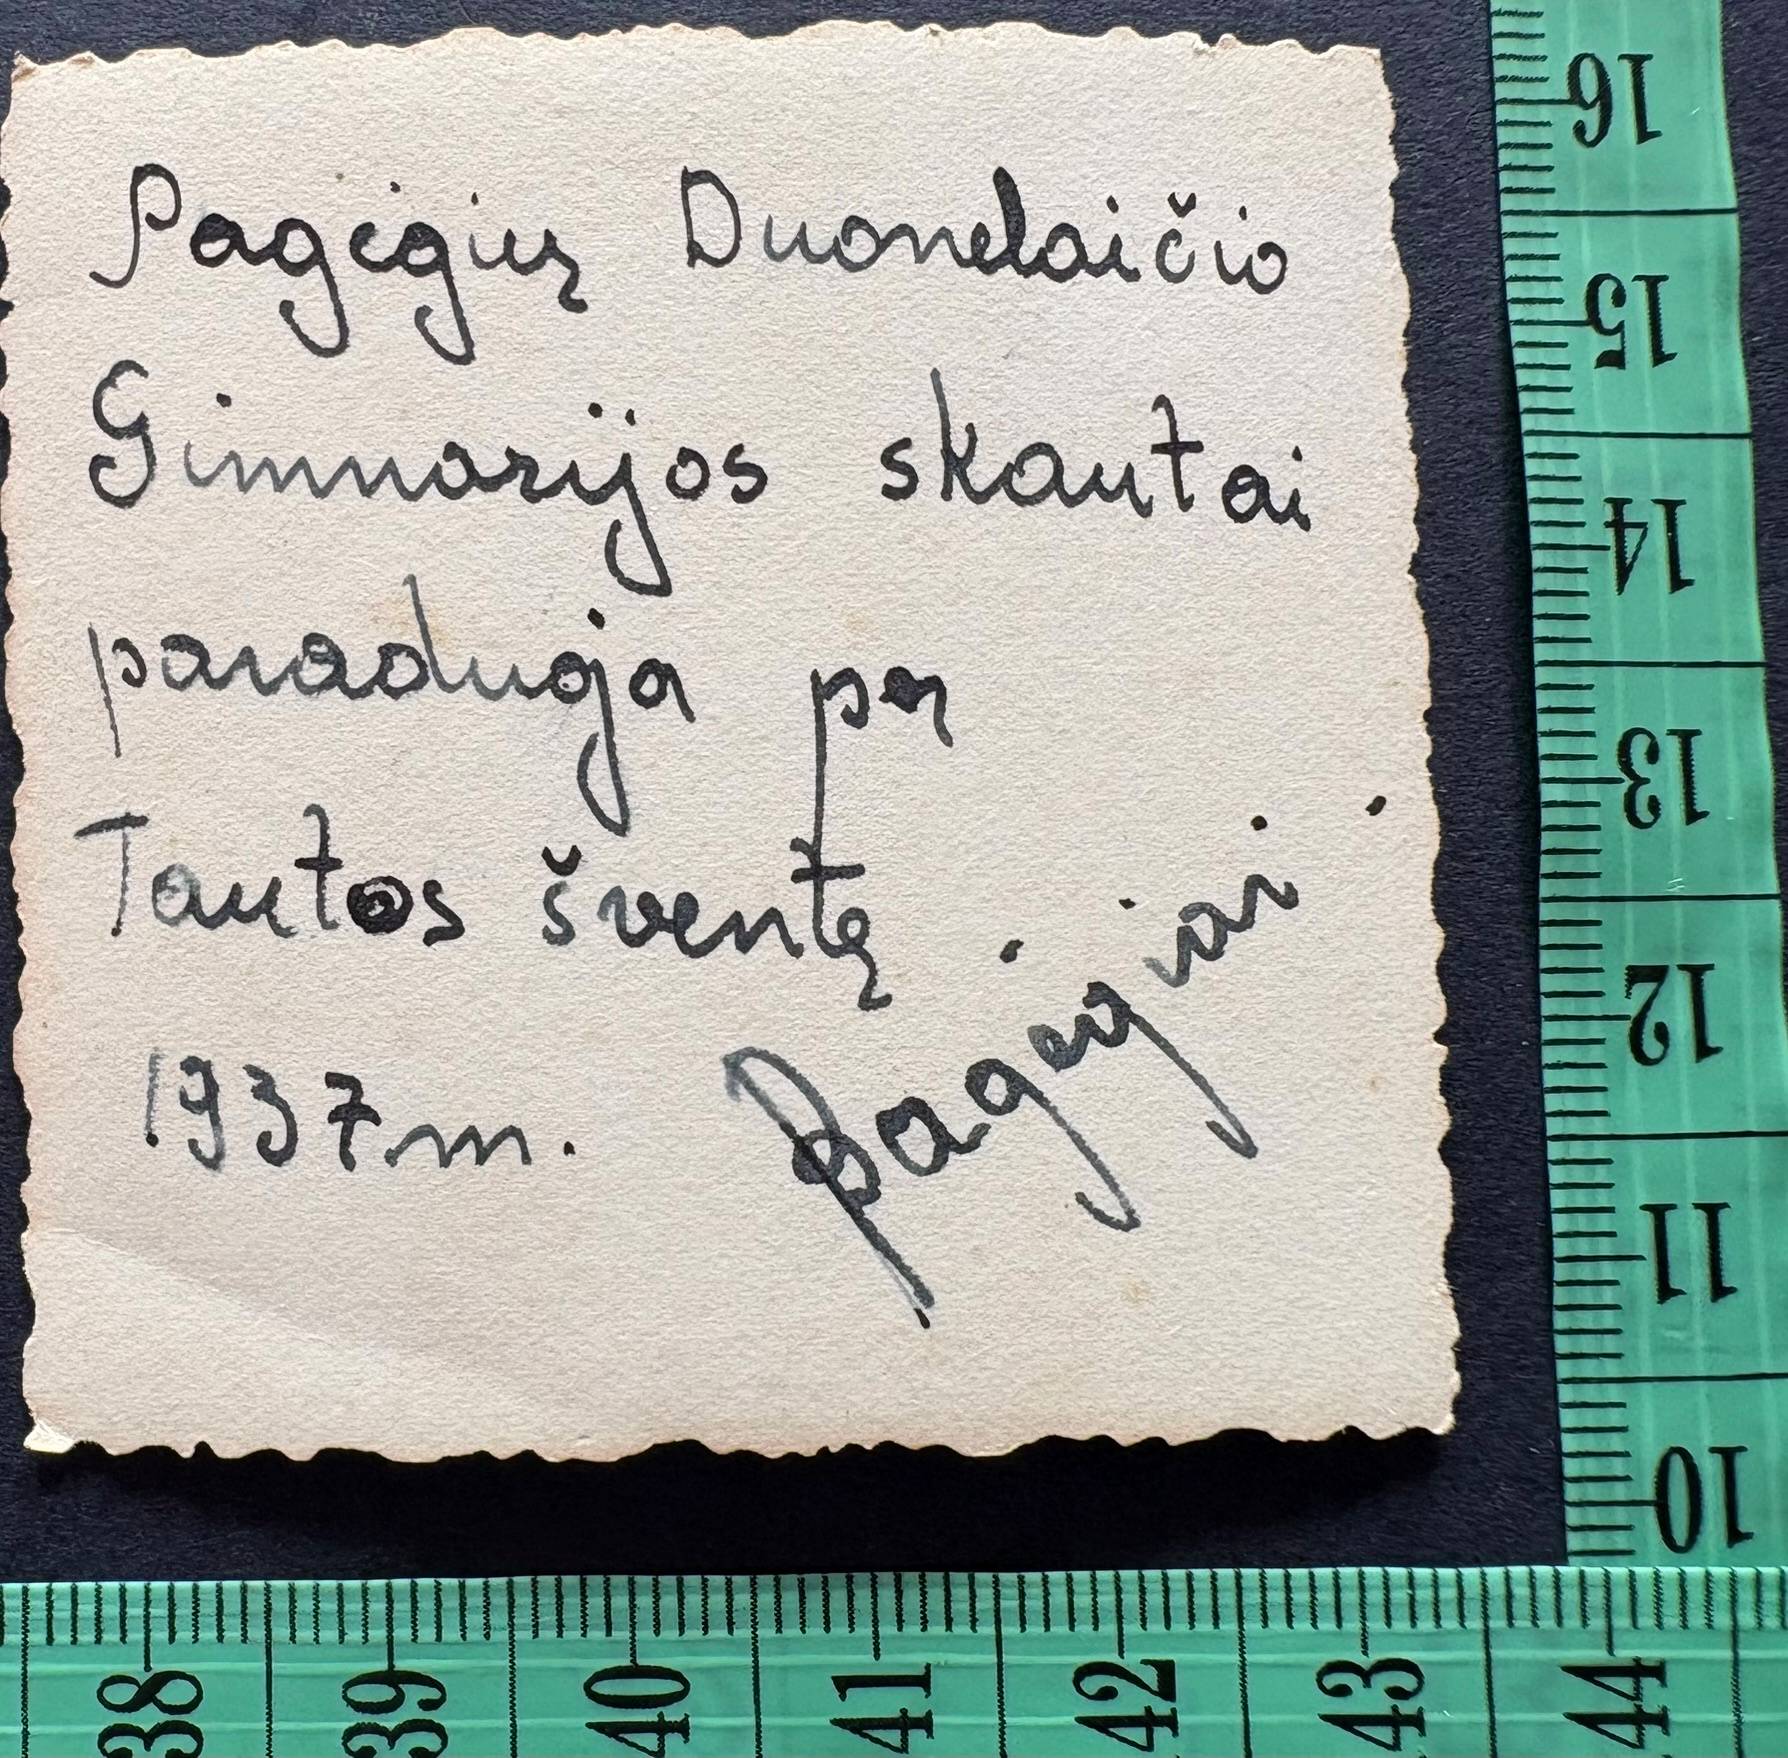 Pagėgių Duonelaičio
Gimnazijos skautai
paraduoja per
Tautos šventę
1937 m.
Pagėgiai
16
15
14
13
12
11
10
38 39 40 41 42 43 44